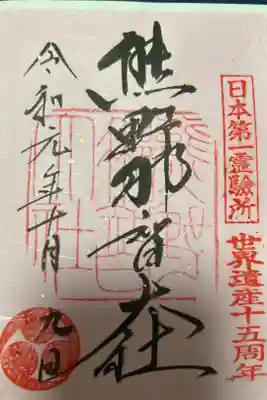 日本第一霊驗所
世界遺産十五周年
熊野那智大社
令和元年十月
九日